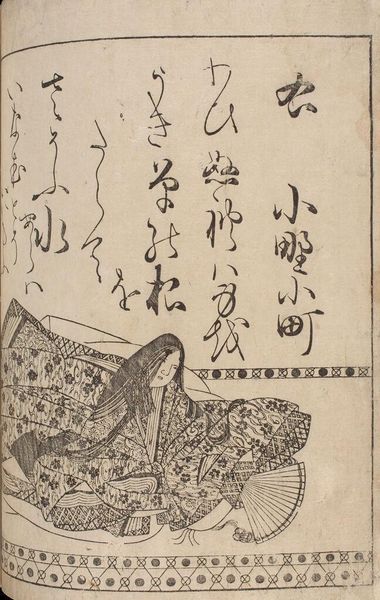 右　小野小町
わひぬれハ身を
うき草の根を
たえて
さそふ水あらハ
いなむとそ